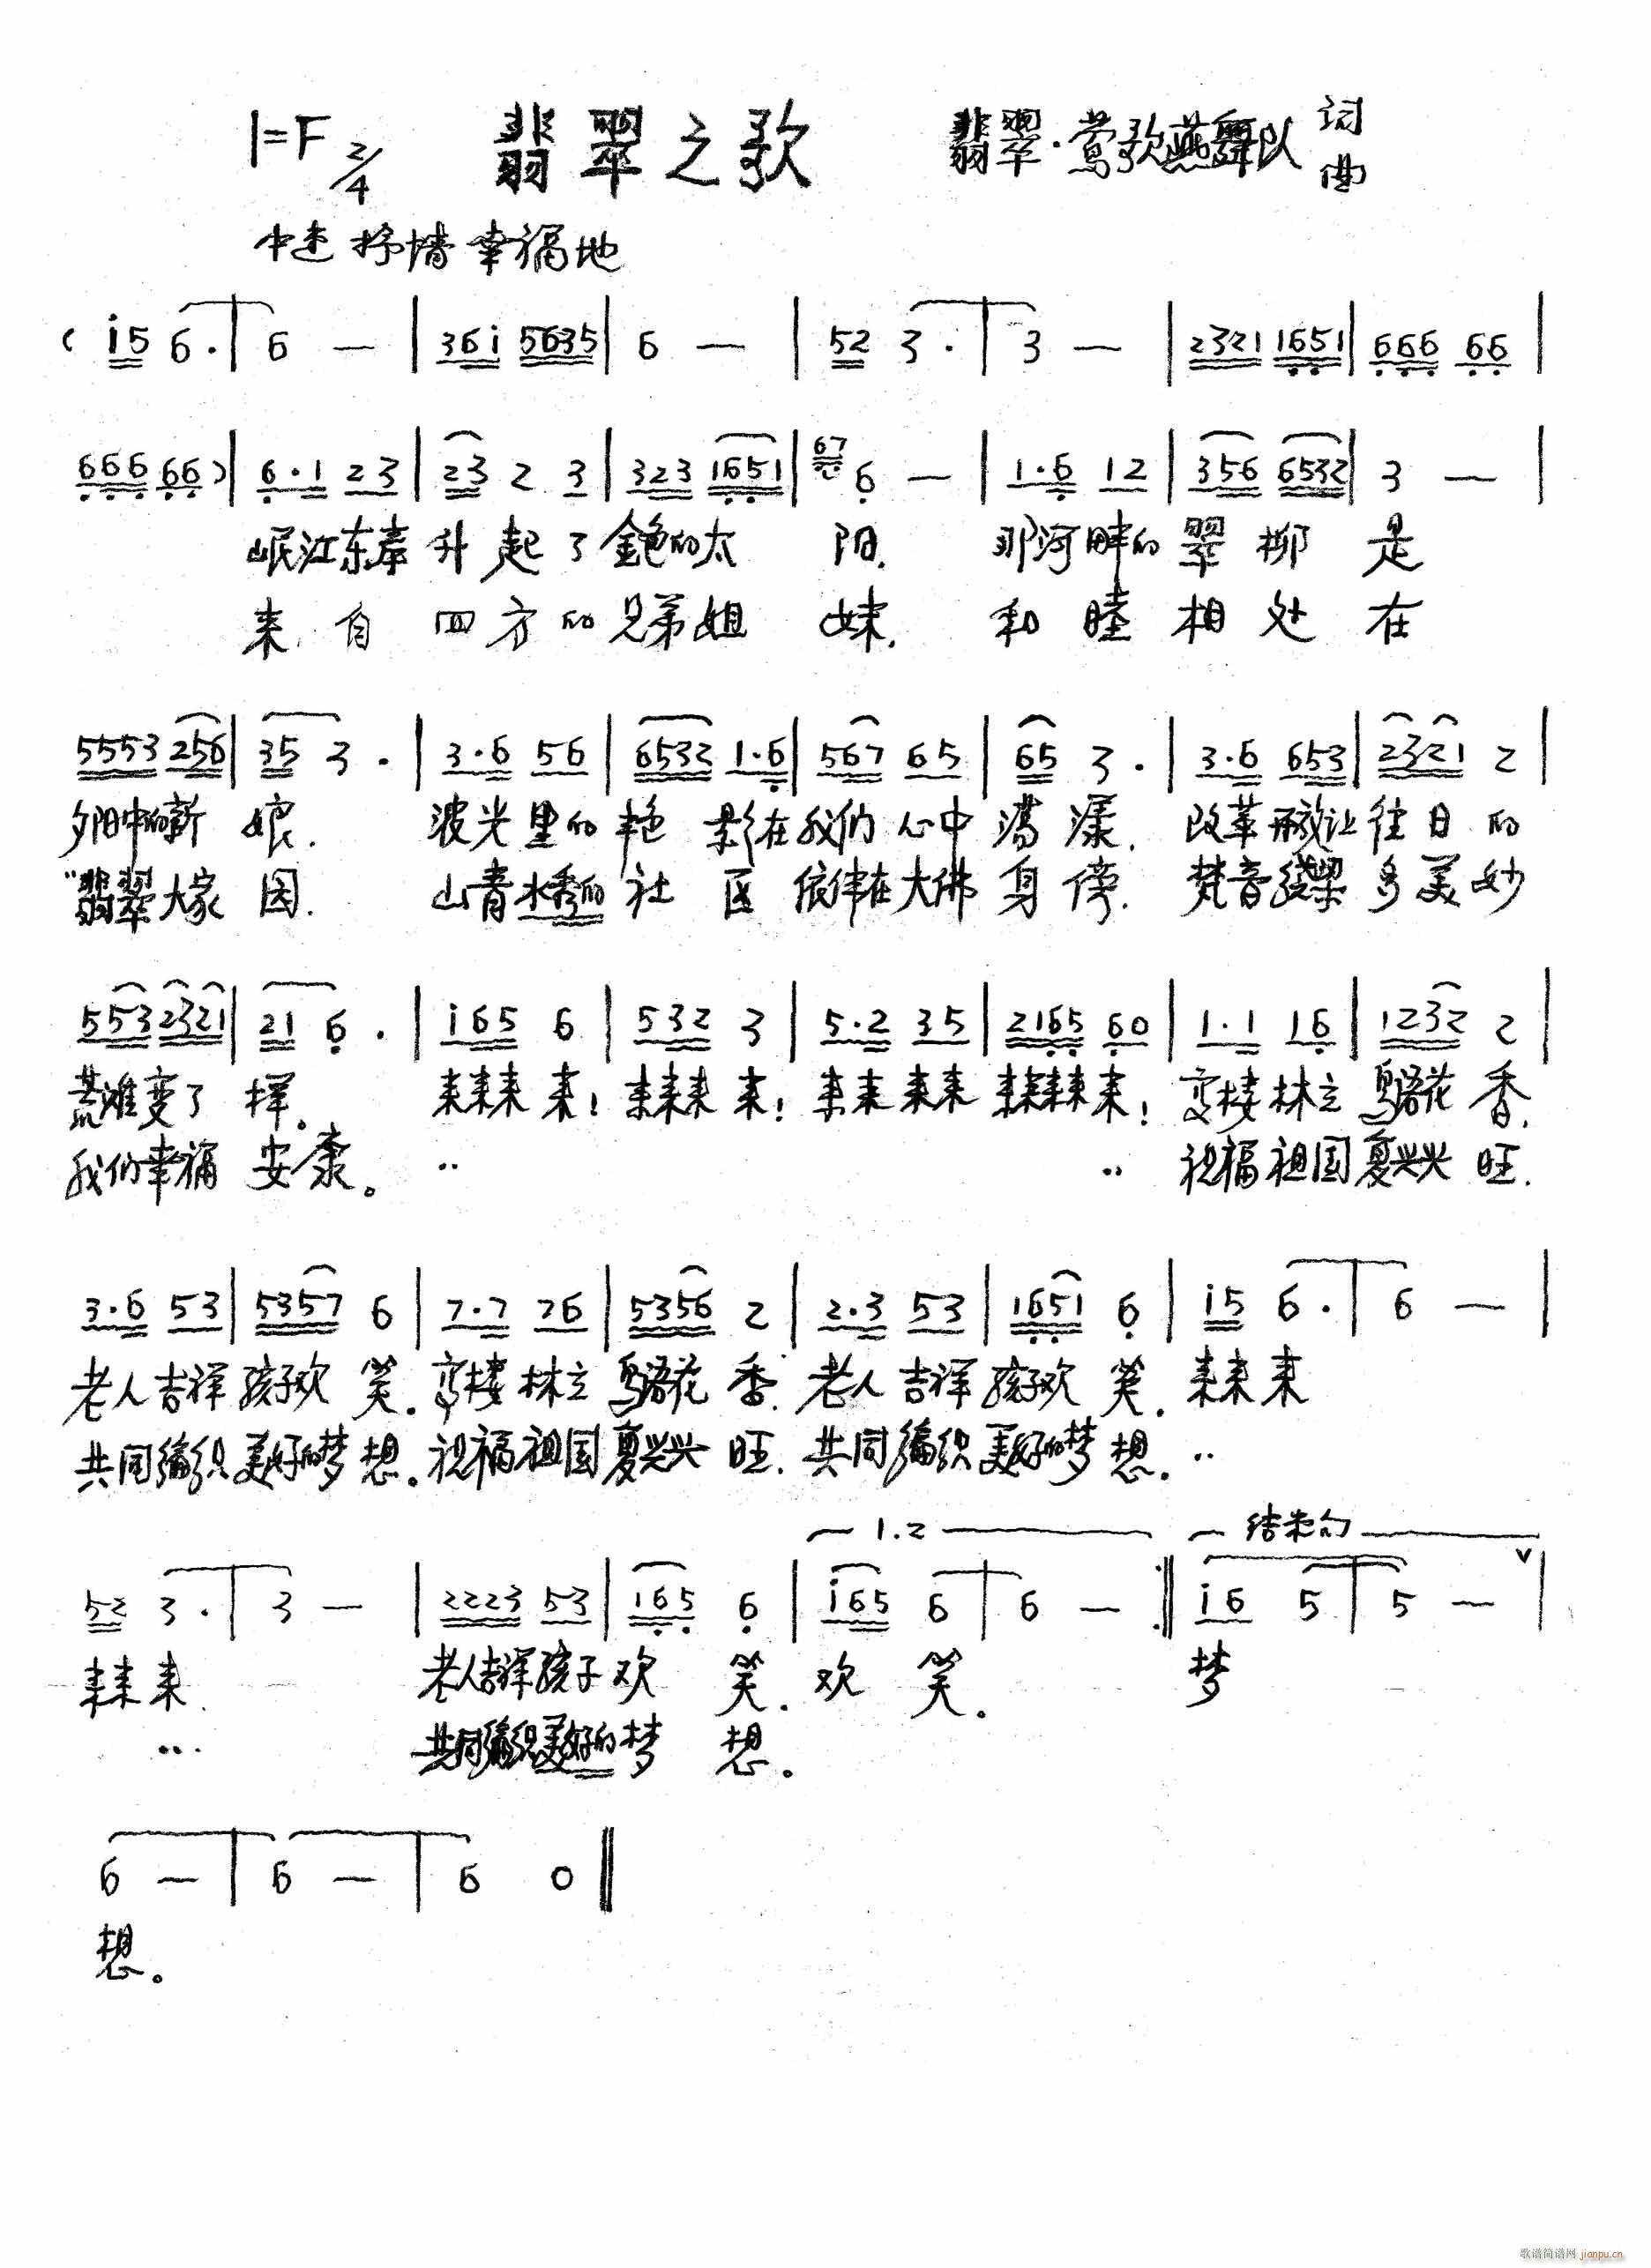 1=F 2/4 翡翠之歌 翡翠·莺歌燕舞队 词曲
中速 抒情 幸福地
( i5 6· | 6 — | 36i 5635 | 6 — | 52 3· | 3 — | 2321 1651 | 666 66 |
666 66 ) | 6·1 23 | 23 2 3 | 323 1651 | 67 6 — | 1·6 12 | 356 6532 | 3 — |
岷江东岸升起了金色的太阳. 那河畔的翠柳是
来自四方的兄弟姐妹. 和睦相处在
5553 256 | 35 3· | 3·6 56 | 6532 1·6 | 567 65 | 65 3· | 3·6 653 | 2321 2 |
夕阳中的新娘. 波光里的艳影在我们心中荡漾. 改革开放让往日的
“翡翠大家园. 山青水秀的社区依伴在大佛身傍. 梵音绕梁多美妙
553 2321 | 21 6· | i65 6 | 532 3 | 5·2 35 | 2165 60 | 1·1 16 | 1232 2 |
荒滩变了样。 来来来来! 来来来来! 来来来来来来来来来! 高楼林立鸟语花香.
我们幸福安康。 ‥ ‥ 祝福祖国复兴兴旺.
3·6 53 | 5357 6 | 7·7 76 | 5356 2 | 2·3 53 | 1651 6 | i5 6· | 6 — |
老人吉祥孩子欢笑. 高楼林立鸟语花香. 老人吉祥孩子欢笑. 来来来
共同编织美好的梦想。祝福祖国复兴兴旺. 共同编织美好的梦想. ‥
1.2 结束句
52 3· | 3 — | 2223 53 | 165 6 | i65 6 | 6 — :‖ i6 5 | 5 — |
来来来. 老人吉祥孩子欢笑. 欢笑。 梦
… 共同编织美好的梦想。
6 — | 6 — | 6 0 ‖
想。
歌谱简谱网 jianpu.cn